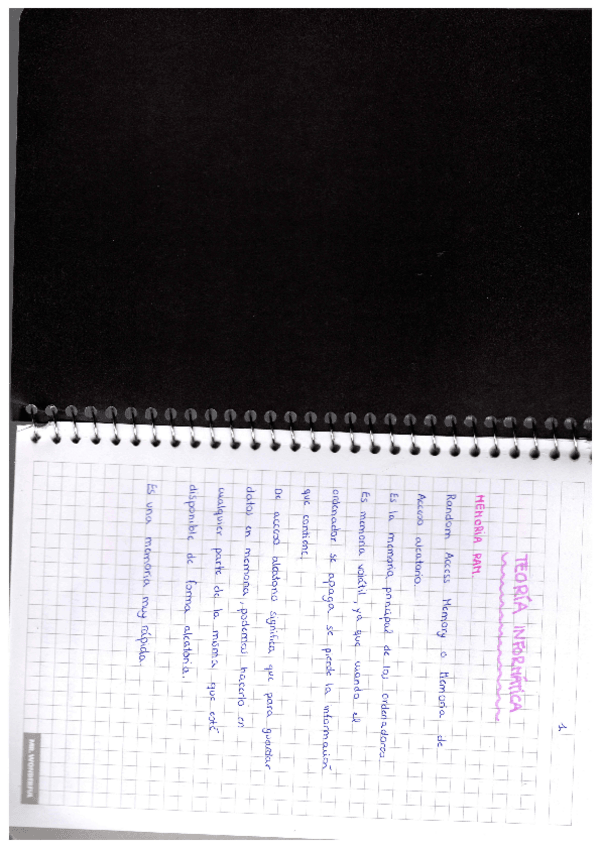 1
TEORÍA INFORMÁTICA
MEMORIA RAM.
Random Access Memory o Memoria de
Acceso aleatorio.
Es la memoria principal de los ordenadores
Es memoria volátil, ya que cuando el
ordenador se apaga se pierde la información
que contiene.
De acceso aleatorio significa que para guardar
datos en memoria, podemos hacerlo en
cualquier parte de la misma que esté
disponible de forma aleatoria.
Es una memoria muy rápida.
MR. WONDERFUL